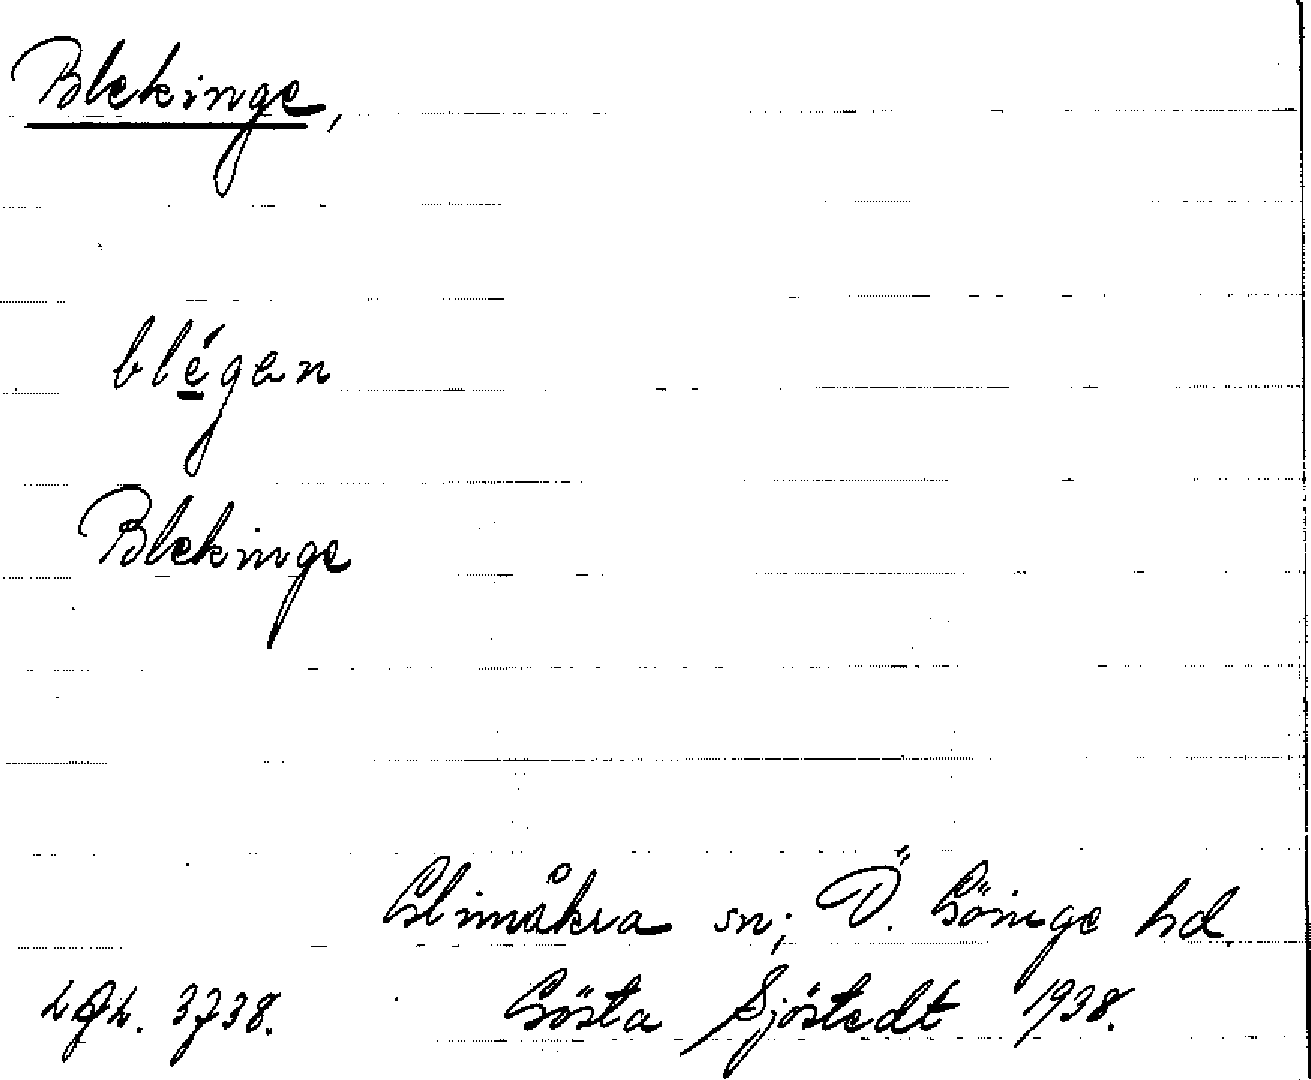 Blekinge,
blégen
Blekinge
Glimåkra sn; Ö. Göinge hd.
3738. Gösta Sjöstedt 1938.